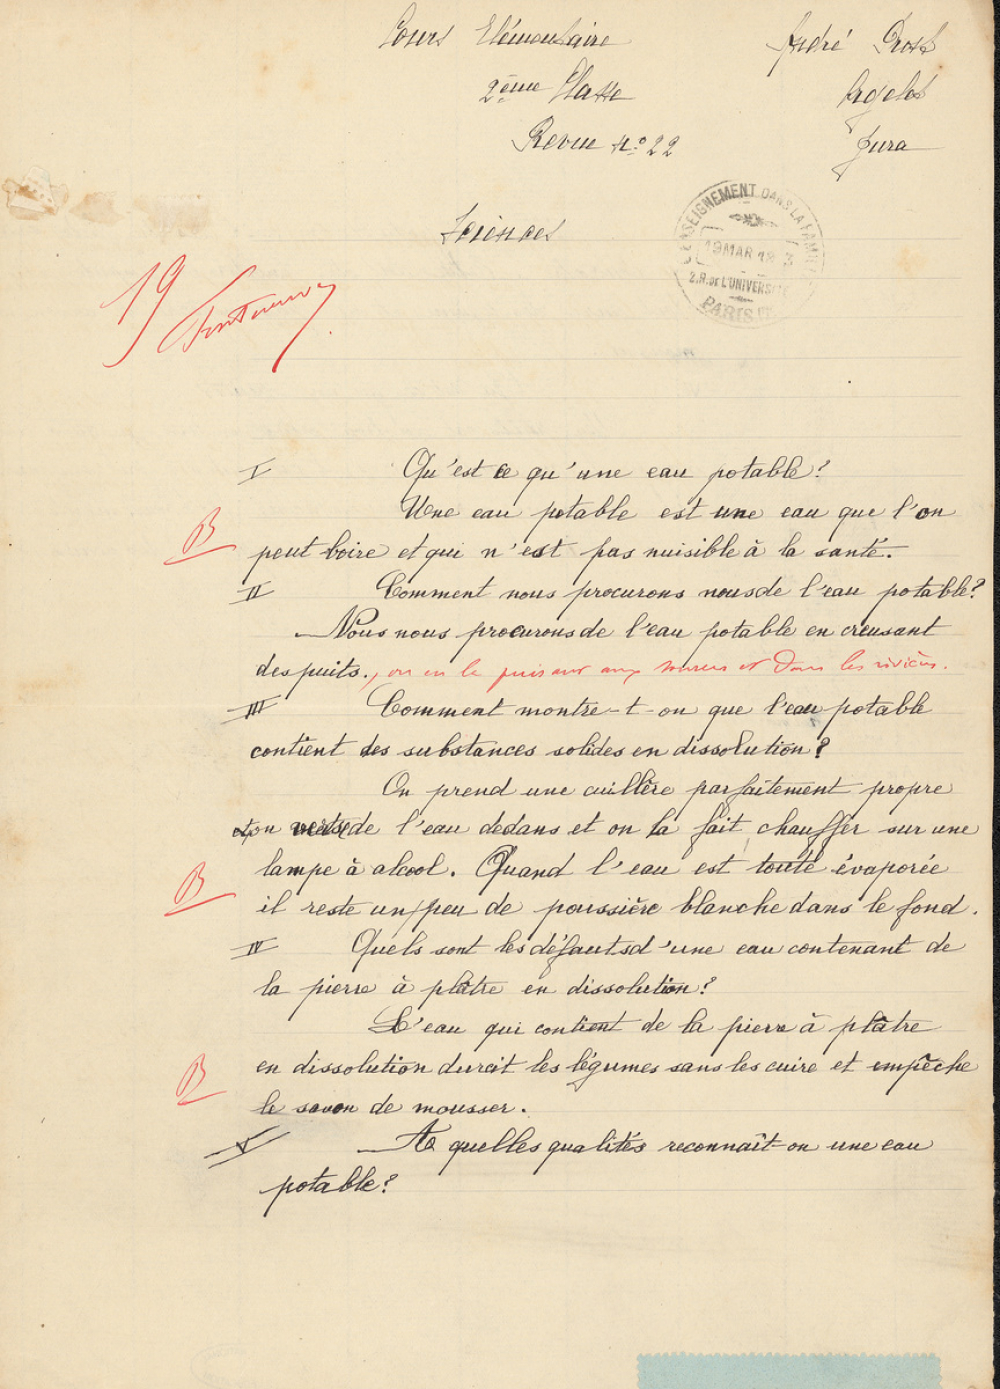 Cours Elémentaire
André Prost
2ème Classe
Orgelet
Revue No 22
Jura
Sciences
ENSEIGNEMENT DANS LA FAMILLE
19 MAR
2.R. DE L'UNIVERSITÉ
PARIS
19
I Qu'est ce qu'une eau potable?
Une eau potable est une eau que l'on
B peut boire et qui n'est pas nuisible à la santé.
II Comment nous procurons nous de l'eau potable?
Nous nous procurons de l'eau potable en creusant
des puits., ou en la puisant aux sources et dans les rivières.
III Comment montre-t-on que l'eau potable
contient des substances solides en dissolution?
On prend une cuillère parfaitement propre
et on verse de l'eau dedans et on la fait chauffer sur une
lampe à alcool. Quand l'eau est toute évaporée
B il reste un peu de poussière blanche dans le fond.
IV Quels sont les défauts d'une eau contenant de
la pierre à plâtre en dissolution?
L'eau qui contient de la pierre à plâtre
en dissolution durcit les légumes sans les cuire et empêche
B le savon de mousser.
V A quelles qualités reconnaît-on une eau
potable?